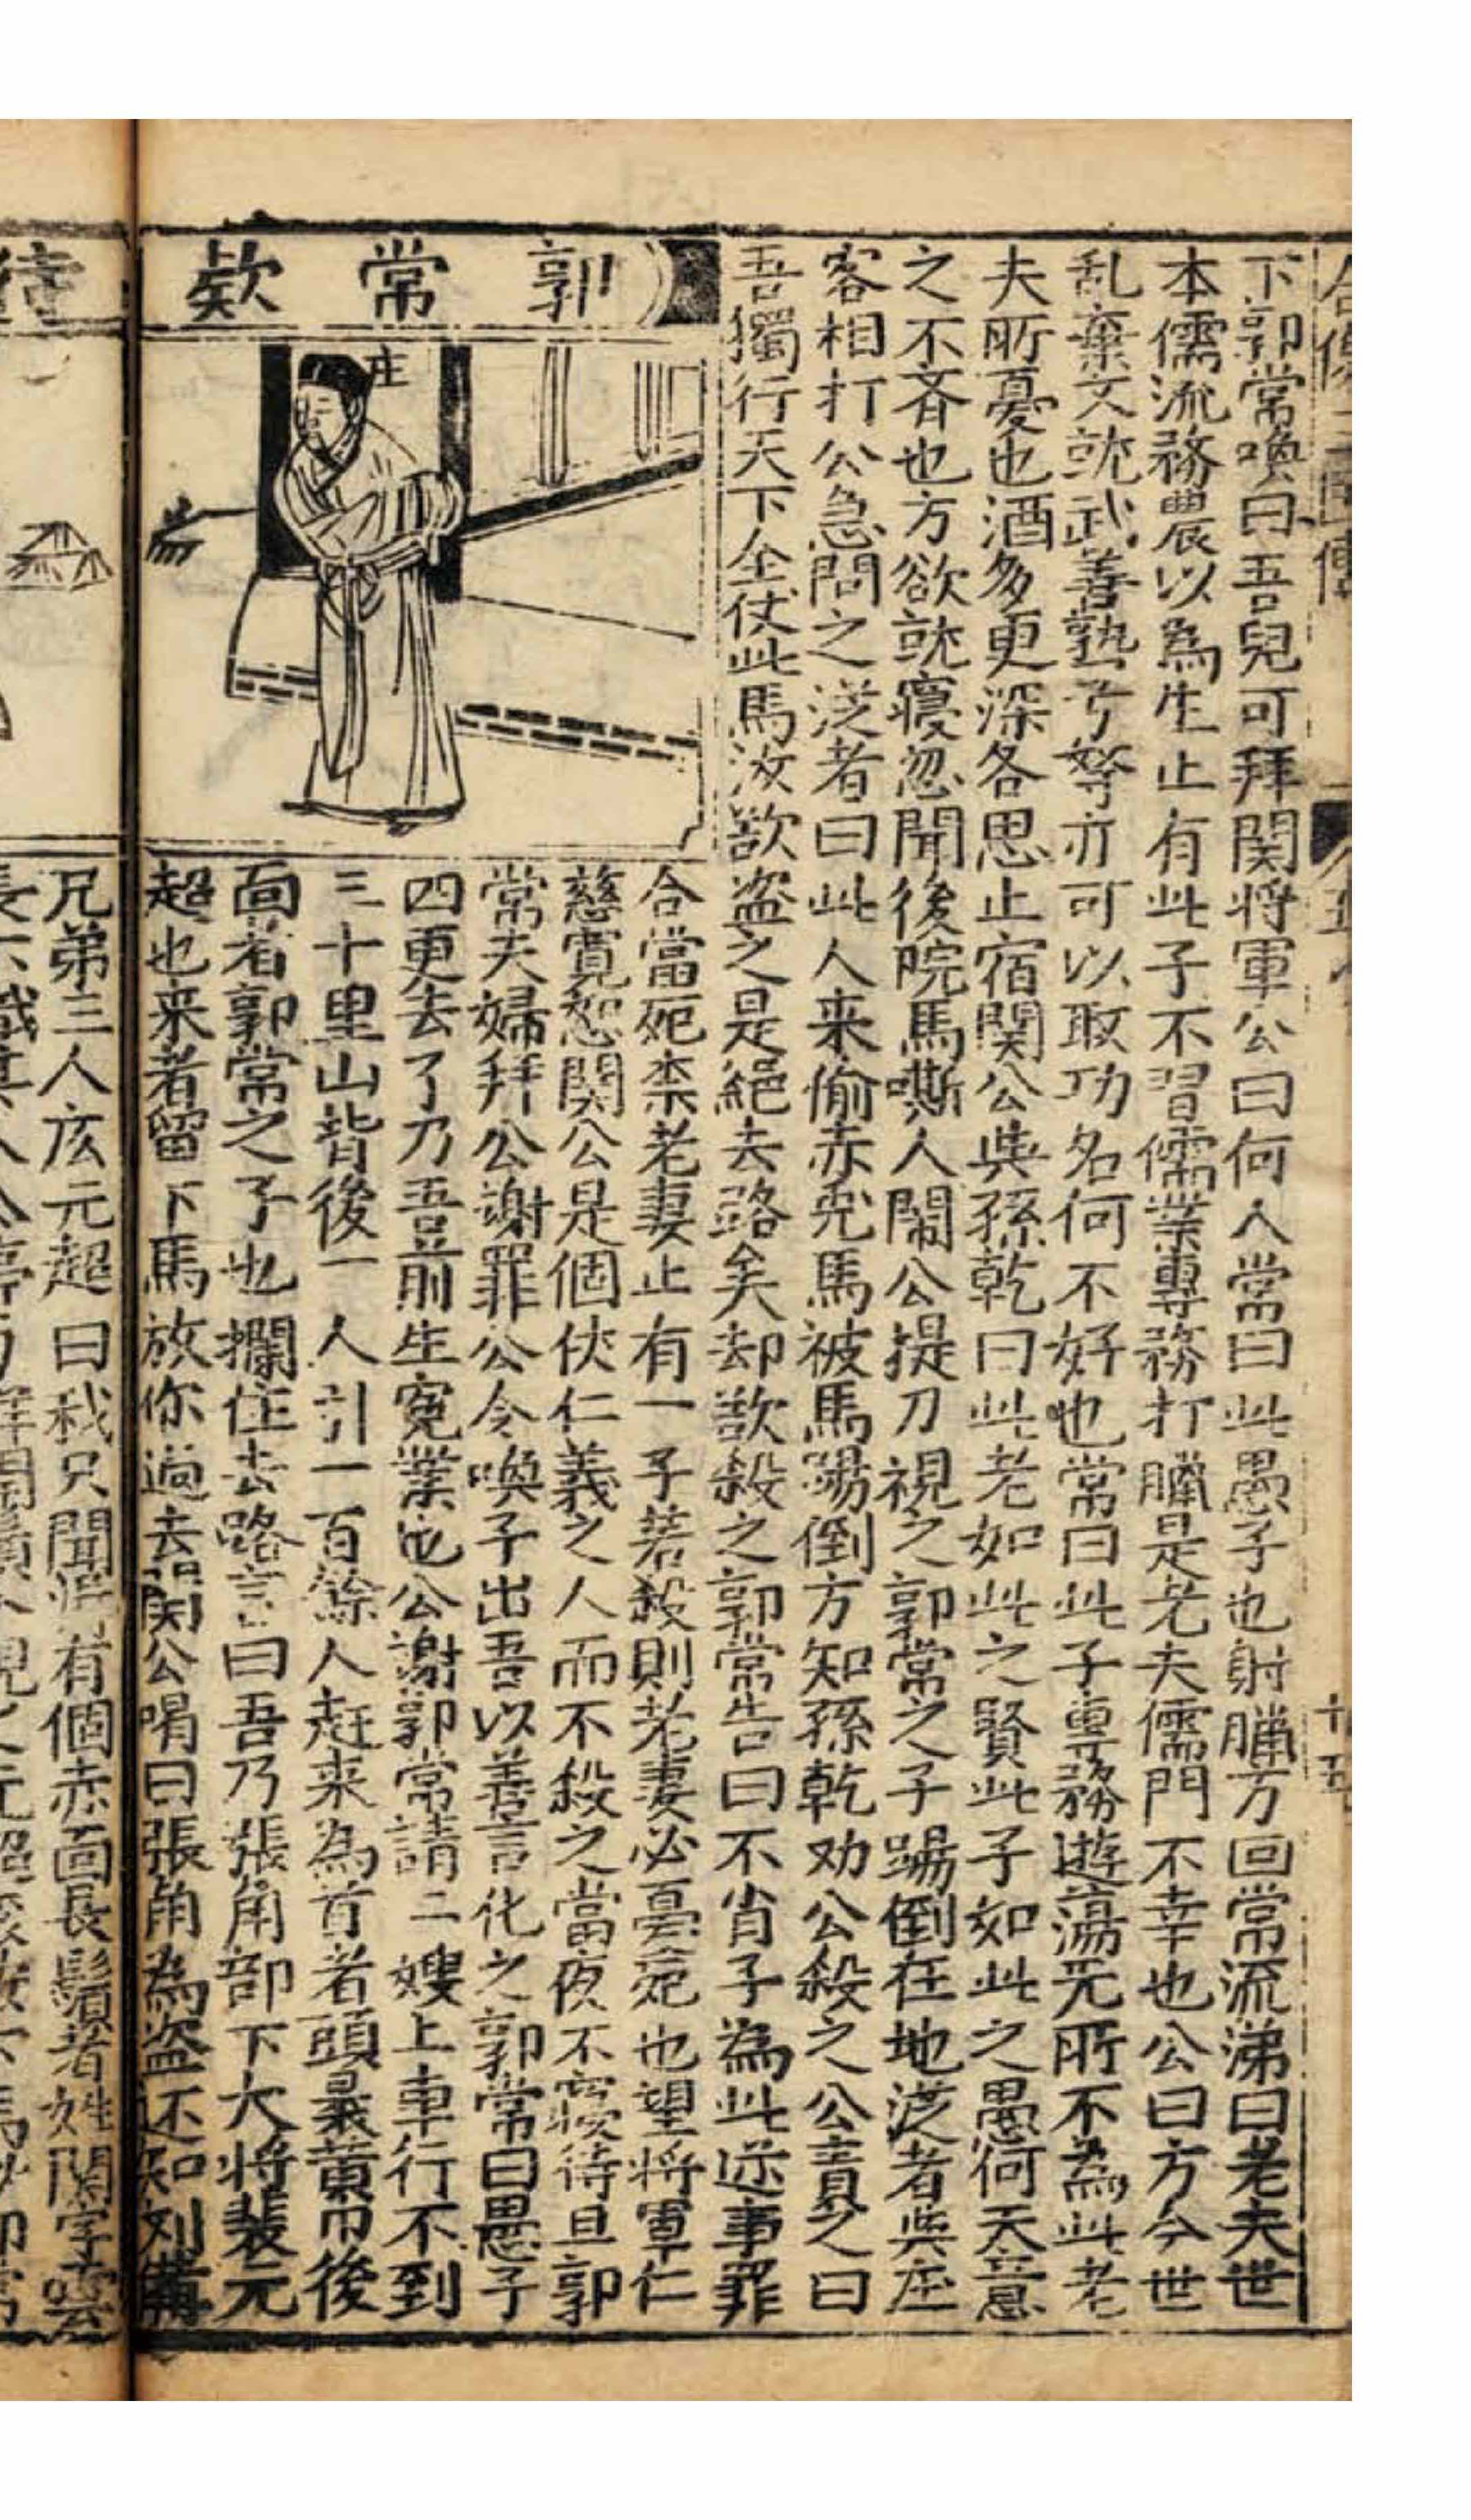 下郭常喚曰吾兒可拜関将軍公曰何人常曰此愚子也射臘方回常流涕曰老夫世
本儒流務農以為生止有此子不習儒業專務打臘是老夫儒門不幸也公曰方今世
乱棄文就武善熟弓弩亦可以取功名何不好也常曰此子專務遊蕩无所不為此老
夫所憂也酒多更深各思止宿関公與孫乾曰此老如此之賢此子如此之愚何天意
之不斉也方欲就寢忽聞後院馬嘶人鬧公提刀視之郭常之子踢倒在地従者與庄
客相打公急問之従者曰此人来偷赤兎馬被馬踢倒方知孫乾劝公殺之公責之曰
吾獨行天下全仗此馬汝欲盗之是絕去路矣却欲殺之郭常告曰不肖子為此逆事罪
郭常欵待
庄
合當死柰老妻止有一子若殺則老妻必憂死也望将軍仁
慈寬恕関公是個俠仁義之人而不殺之當夜不寝待旦郭
常夫婦拜公謝罪公令喚子出吾以善言化之郭常曰愚子
四更去了乃吾前生冤業也公謝郭常請二嫂上車行不到
三十里山背後一人引一百餘人赶来為首者頭裹黄巾後
面者郭常之子也攔住去路言曰吾乃張角部下大将裴元
超也来者留下馬放你過去関公喝曰張角為盗还知刘備
兄弟三人庅元超曰我只聞得有個赤面長鬚者姓関字雲
十五